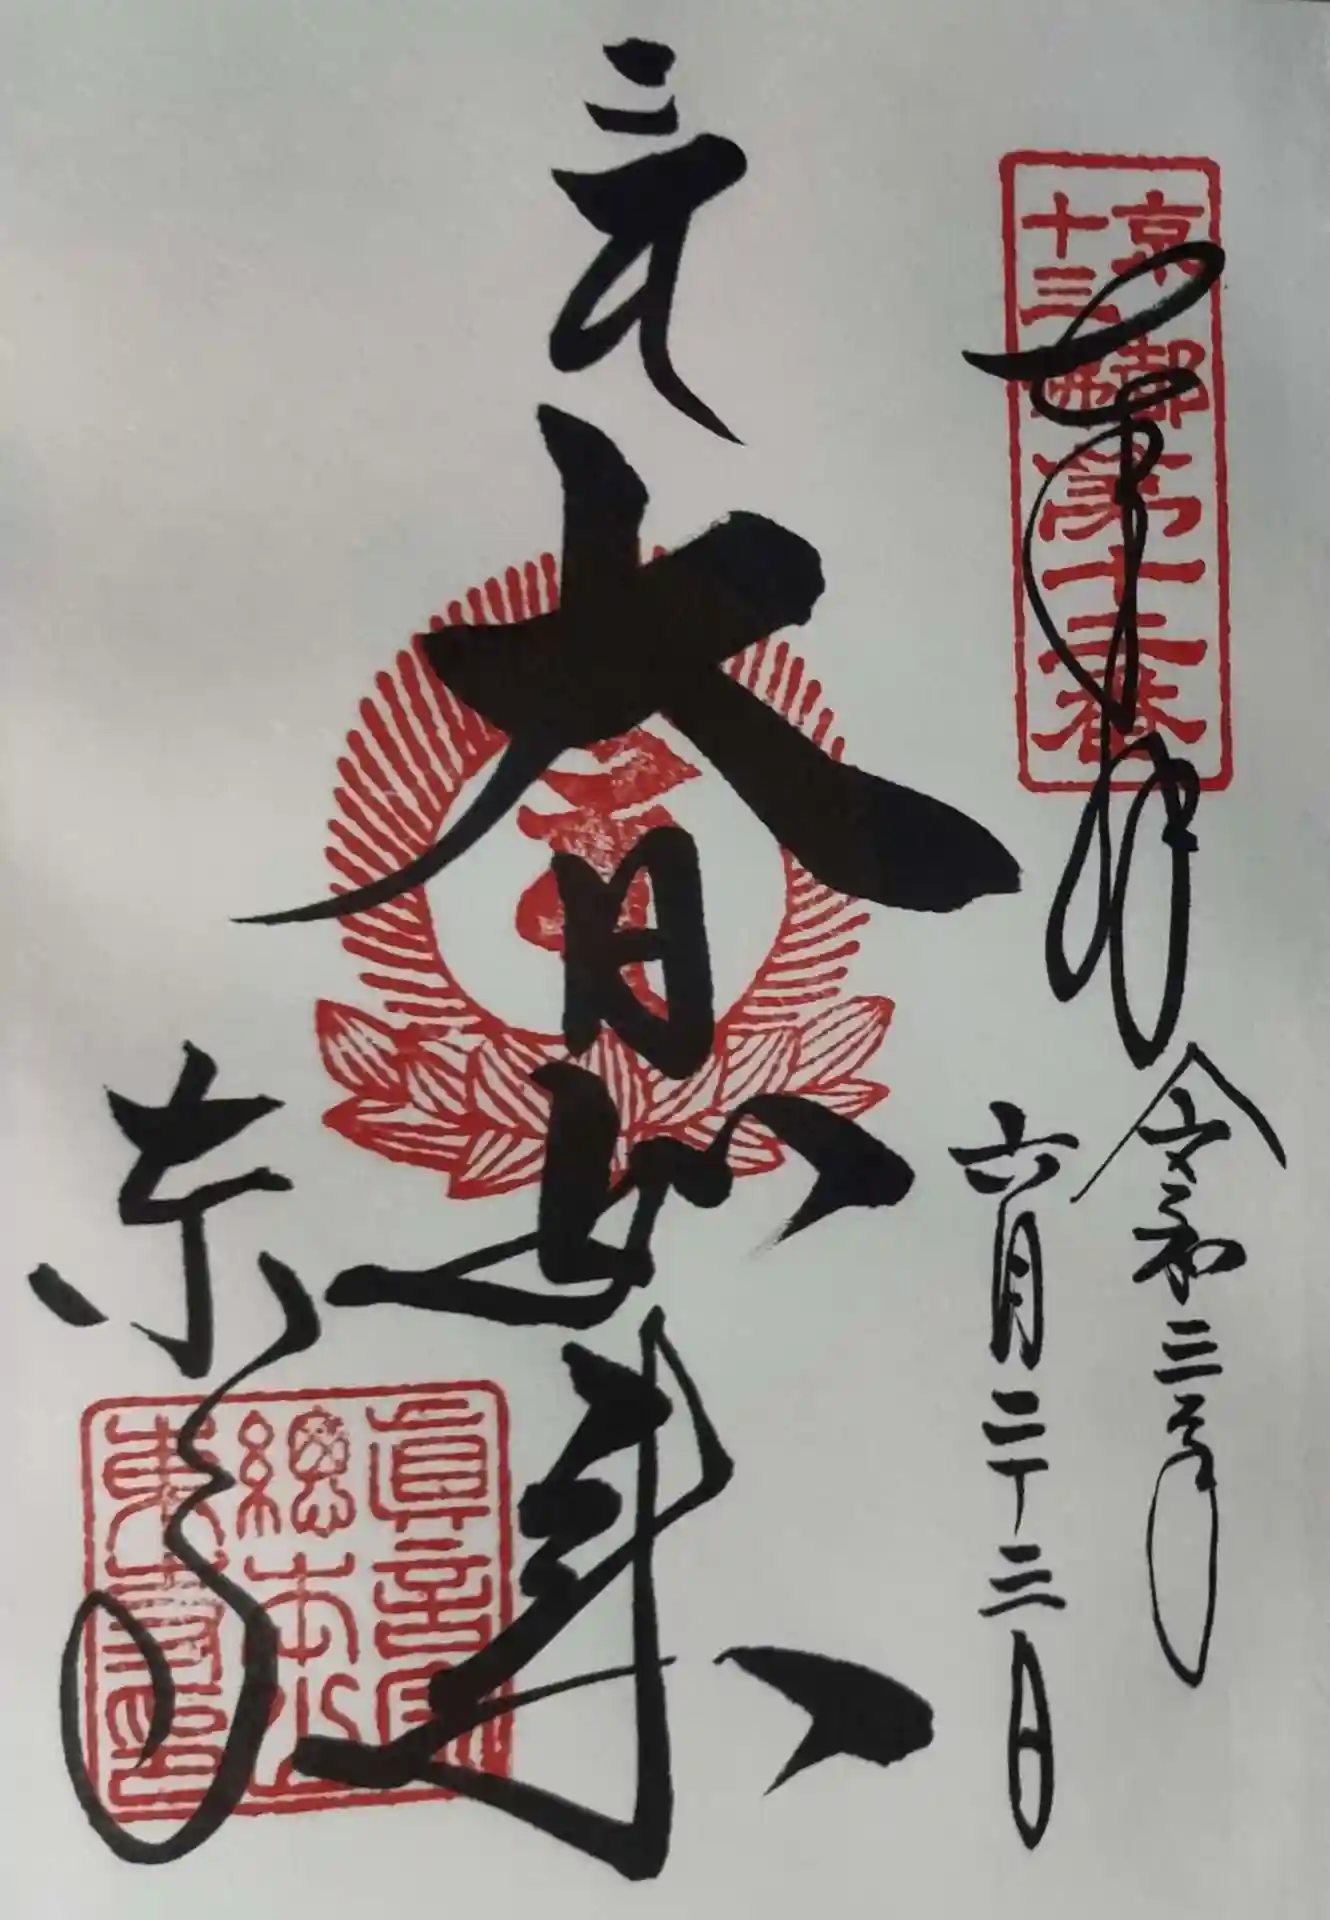 京都
十三佛
第十二番
奉拝
令和三年
六月二十三日
大日如来
真言宗
総本山
東寺印
東寺